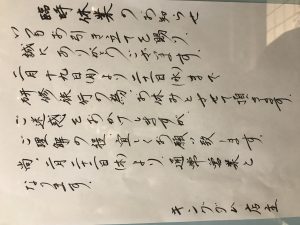 臨時休業のお知らせ
いつもお引き立てを賜り
誠にありがとうございます。
二月十九日(月)より二十一日(水)まで
研修旅行の為、お休みとさせて頂きます。
ご迷惑をおかけしますが
ご理解の程、宜しくお願い致します。
尚、二月二十二日(木)より、通常営業と
なります。
キング 店主